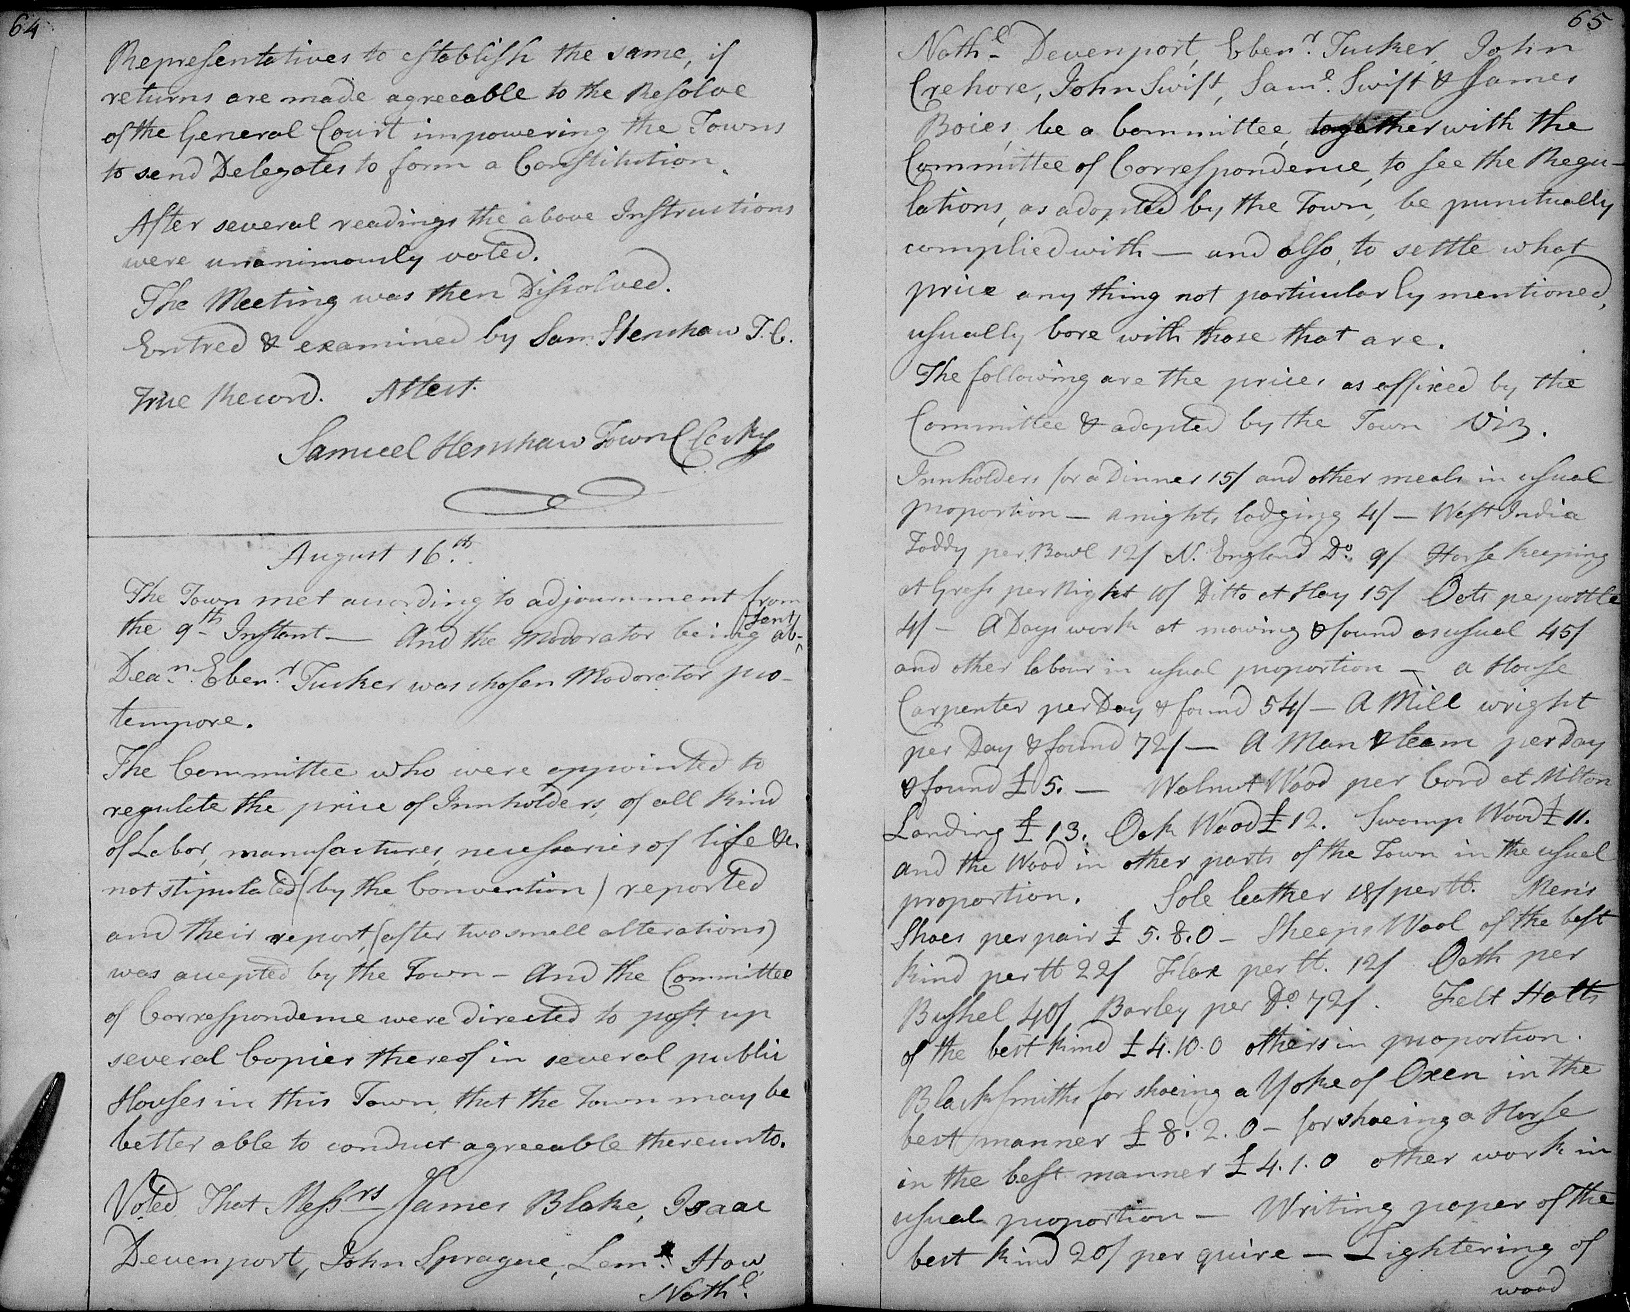 64
Representatives to establish the same, if
returns are made agreeable to the Resolve
of the General Court impowering the Towns
to send Delegates to form a Constitution.
After several readings the above Instructions
were unanimously voted.
The Meeting was then Dissolved.
Entred & examined by Sam. Henshaw T.C.
True Record. Attest.
Samuel Henshaw Town Clerk
August 16th.
The Town met according to adjournment from
the 9th Instant — And the Moderator being ab-
sent
Dean. Ebenr. Tucker was chosen Modorator pro-
tempore.
The Committee who were appointed to
regulate the price of Innholders, of all kind
of Labor, manufactures, necessaries of life &c.
not stipulated (by the Convention) reported
and their report, (after two small alterations)
was accepted by the Town — And the Committee
of Correspondence were directed to post up
several Copies thereof in several public
Houses in this Town, that the Town may be
better able to conduct agreeable thereunto.
Voted, That Messrs James Blake, Isaac
Devenport, John Sprague, Lemˡ. How
Nathˡ.
65
Nathˡ. Devenport, Ebenr. Tucker, John
Crehore, John Swift, Samˡ. Swift & James
Boies, be a Committee, together with the
Committee of Correspondence, to see the Regu-
lations, as adopted by the Town, be punctually
complied with — and also, to settle what
price any thing not particularly mentioned,
usually bore with those that are.
The following are the prices as affixed by the
Committee & adopted by the Town Viz.
Innholders for a Dinner 15/ and other meals in usual
proportion — a nights lodging 4/ — West India
Toddy per Bowl 12/ N. England Do. 9/ Horse keeping
at Grass per Night 10/ Ditto at Hay 15/ Oats per pottle
4/ — A Days work at mowing & found as usual 45/
and other labour in usual proportion — a House
Carpenter per Day & found 54/ — A Mill wright
per Day & found 72/ — A Man & team per Day
& found £5. — Walnut Wood per Cord at Milton
Landing £13. Oak Wood £12. Swamp Wood £11.
and the Wood in other parts of the Town in the usual
proportion. Sole leather 18/ per lb. Men's
Shoes per pair £5.8.0 — Sheeps Wool of the best
kind per lb 22/ Flax per lb. 12/ Oath per
Bushel 40/ Barley per Do 72/. Felt Hatts
of the best kind £4.10.0 others in proportion.
Blacksmiths for shoeing a Yoke of Oxen in the
best manner £8.2.0 — for shoeing a Horse
in the best manner £4.1.0 other work in
usual proportion — Writing paper of the
best kind 20/ per quire — Lightering of
wood